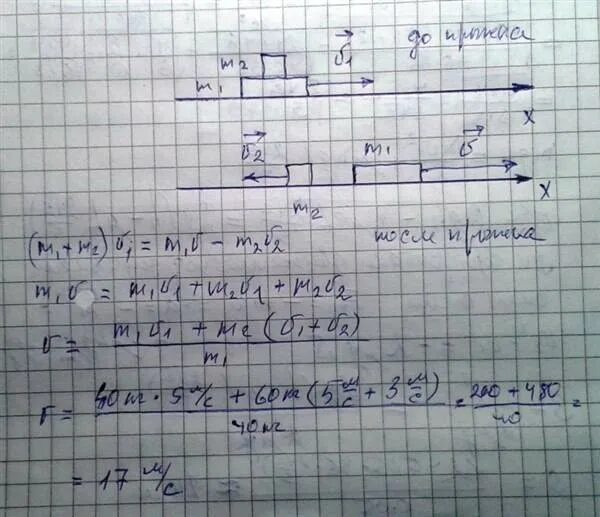 до прыжка
m₂ v⃗₁
m₁
X
v⃗₂ m₁ v⃗
X
m₂
после прыжка
(m₁+m₂)v₁ = m₁v − m₂v₂
m₁v = m₁v₁ + m₂v₁ + m₂v₂
v = (m₁v₁ + m₂(v₁+v₂))/m₁
v = (40кг · 5 м/с + 60кг (5 м/с + 3 м/с))/40кг = (200 + 480)/40 =
= 17 м/с